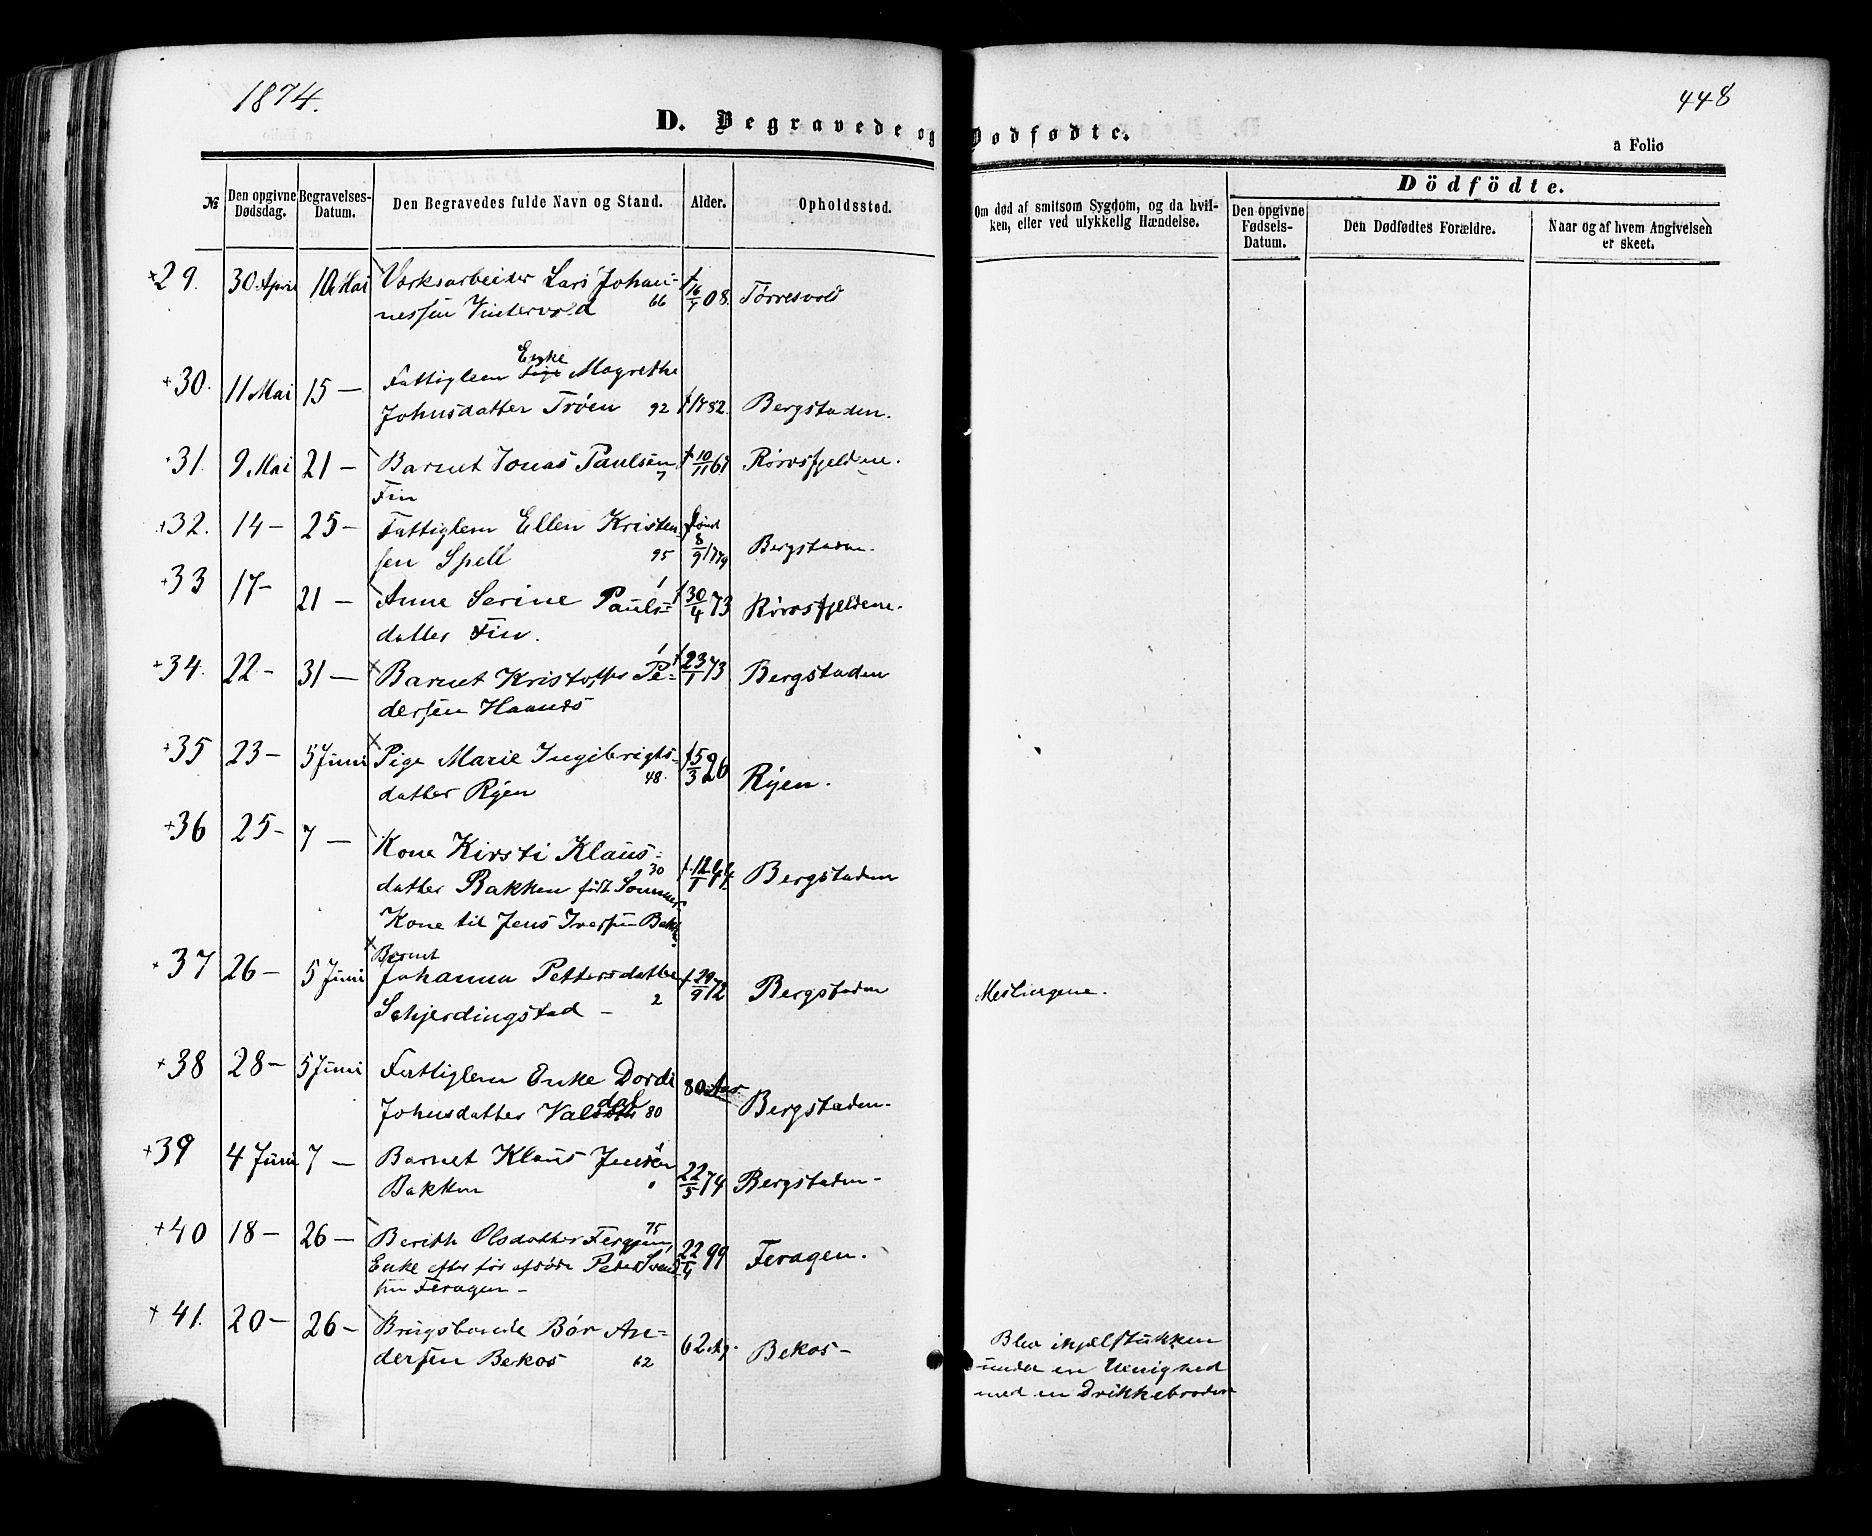 1874.
448
D. Begravede og Dødfødte.
a Folio
Dödfödte.
№
Den opgivne Dødsdag.
Begravelses-Datum.
Den Begravedes fulde Navn og Stand.
Alder.
Opholdssted.
Om død af smitsom Sygdom, og da hvilken, eller ved ulykkelig Hændelse.
Den opgivne Fødsels-Datum.
Den Dødfødtes Forældre.
Naar og af hvem Angivelsen er skeet.
+29. 30 April 10 Mai Værksarbeider Lars Johan- 16/4 08. Tørresvold
nessen Vintervold 66
+30. 11 Mai 15 — Fattiglem Enke Magrethe
Johnsdatter Trøen 92 1782. Bergstaden.
+31. 9 Mai 21 — Barnet Jonas Paulsen 10/11 67 Rørosfjeldene.
Fin 7
+32. 14 — 25 — Fattiglem Ellen Kristen-
sen Spell 95 8/9 1779 Bergstaden.
+33 17 — 21 — Anne Serine Pauls= 1 30/4 73 Rørosfjeldene.
datter Fin.
+34. 22 — 31 — Barnet Kristoffer Pe= 1 23/1 73 Bergstaden
dersen Haanes
+35 23 — 5 Juni Pige Marie Ingibrigts- 5/3 26
datter Ryen 48. Ryen.
+36 25 — 7 — Kone Kirsti Klaus=
datter Bakken født Sommer 30 12/1 44 Bergstaden
Kone til Jens Iversen Bakk.
+37 26 — 5 Juni Barnet
Johanna Pettersdatter 29/9 72 Bergstaden Meslingene.
Schjerdingstad — 2
+38 28 — 5 Juni Fattiglem Enke Dordi 80 Aar
Johnsdatter 80 Bergstaden.
+39 4 Juni 7 — Barnet Klaus Jensen 22/5 74 Bergstaden —
Bakken
+40 18 — 26 — Berith Olsdatter 75 22/4 99 Feragen.
Enke efter før afdøde Peder Svend-
sen Feragen —
+41. 20 — 26 — Brugsbonde Bør An= 62 Bekos —
dersen Bekos 62
Blev ihjælstukken
under en Uenighed
med en Drikkebroder